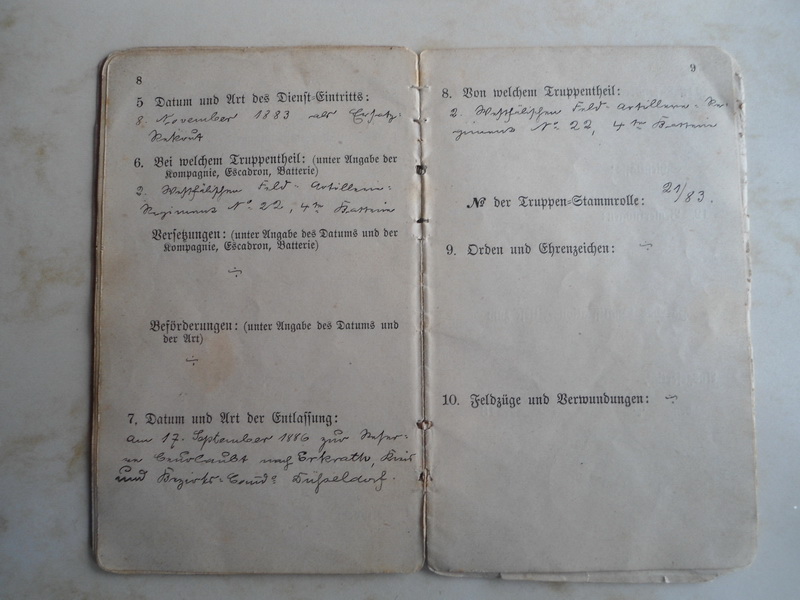 8
5 Datum und Art des Dienst-Eintritts:
8. November 1883 als Ersatz-
Rekrut
6. Bei welchem Truppentheil: (unter Angabe der
Kompagnie, Escadron, Batterie)
2. Westfälischen Feld-Artillerie-
Regiment No 22, 4te Batterie
Versetzungen: (unter Angabe des Datums und der
Kompagnie, Escadron, Batterie)
÷
Beförderungen: (unter Angabe des Datums und
der Art)
÷
7. Datum und Art der Entlassung:
am 17. September 1886 zur Reser-
ve beurlaubt nach Erkrath, Kreis
und Bezirks-Comdo Düsseldorf.
9
8. Von welchem Truppentheil:
2. Westfälischen Feld-Artillerie-Re-
giment No 22, 4te Batterie
№ der Truppen-Stammrolle: 21/83.
9. Orden und Ehrenzeichen: ÷
10. Feldzüge und Verwundungen: ÷